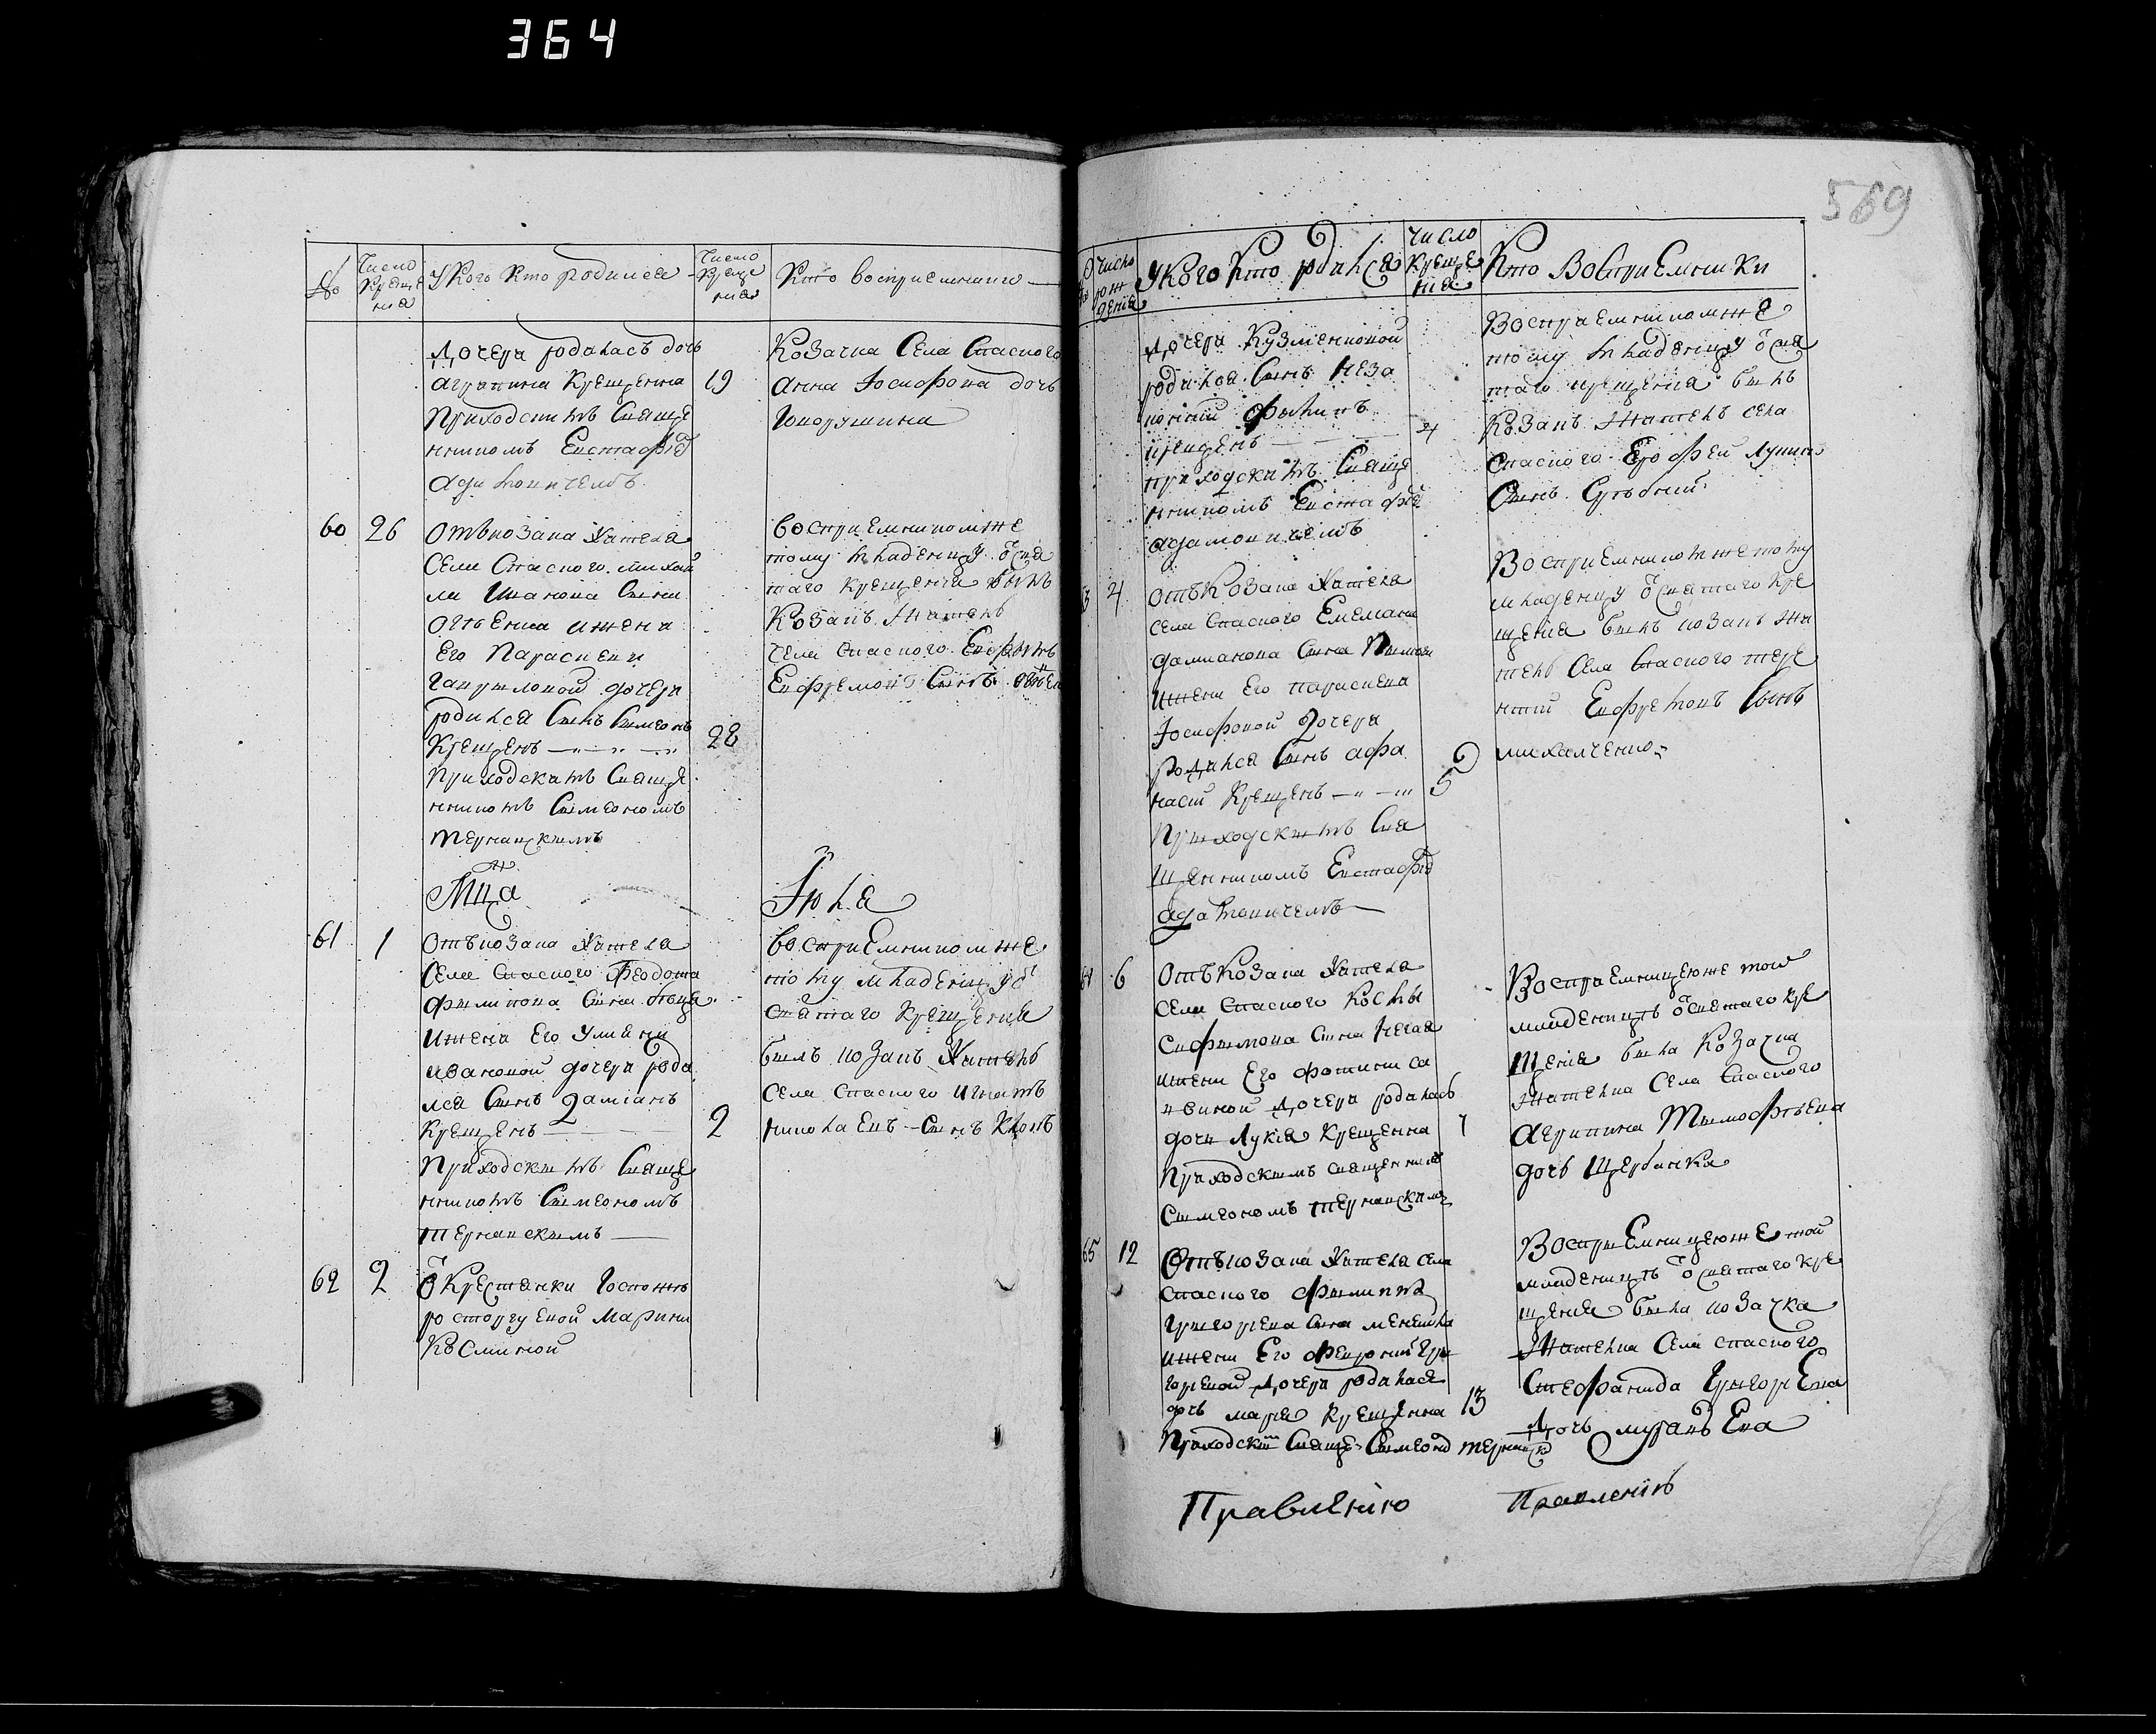 364
569
№
Число
Креще
ния
У Кого Кто родился
Число
Креще
ния
Кто восприемники
дочери родилась дочь
Агрипина Крещенна 19
Приходскимъ Свяще
нникомъ Евстафіе
Козачка Села Спаского
Анна Іосифова дочь
60 26
Отъ козака Жителя
Села Спаского Михай
ла Иванова Сына
и жена
Его Параскеви
Гавриловой дочери
родился Сынъ Симеонъ
Крещенъ 28
Приходскимъ Свяще
нникомъ Симеономъ
Тернавскимъ
восприемникомже
тому младенцу ѿ Свя
таго Крещения былъ
Козакъ Житель
Села Спаского
Ефремовъ Сынъ
Мца
Іюля
61 1
Отъ козака Жителя
Села Спаского Феодота
Филипова Сына
и жена Его Улияни
Ивановой дочери роди
лся Сынъ Даміанъ
Крещенъ 2
Приходскимъ Свяще
нникомъ Симеономъ
Тернавскимъ
восприемникомже
тому младенцу ѿ
Святаго Крещения
былъ козакъ Житель
Села Спаского Игнатъ
Николаевъ Сынъ
62 2
ѿ Крестянки Госпожы
Марини
Косминой
Число
рож
дения
У Кого Кто родился
Число
Креще
ния
Кто Восприемники
дочери Кузменковой
родился Сынъ Неза
конный Филипъ
Крещенъ 4
приходскимъ Свяще
нникомъ Евстафіе
Адамовичемъ
Восприемникомже
тому младенцу ѿ Свя
таго крещения былъ
Козакъ Житель села
Спаского Ерофей
Сынъ
4
Отъ Козака Жителя
села Спаского Емелияна
Дамианова Сына
и жени Его Параскева
Іосифовой дочери
родился Сынъ Афа
насий Крещенъ 5
Приходскимъ Свя
щенникомъ Евстафіе
Адамовичемъ
Восприемникомже тому
младенцу ѿ Святаго Кре
щения былъ козакъ Жи
тель Села Спаского Тере
нтий Ефремовъ Сынъ
Михалченко
6
Отъ Козака Жителя
Села Спаского Космы
Сына
и жени Его Фотини Са
виной дочери родилась
дочь Лукия Крещенна 7
Приходскимъ священнико
Симеономъ Тернавскимъ
Восприемницеюже той
младеницъ ѿ Святаго кре
щения была Козачка
Жителка Села Спаского
Агрипина Тимофѣева
дочь Щербинка
65 12
Отъ козака Жителя Села
Спаского Филиппа
Григориева Сына
и жени Его Феврониі Гри
гориевой дочери родилася
дочь Мария Крещенна 13
Приходским Свяще Симеоно Терновск
Восприемницеюже той
младеницъ ѿ Святаго кре
щения была козачка
Жителка Села Спаского
Стефанида Григориева
дочь
Правленію
Правленіѣ